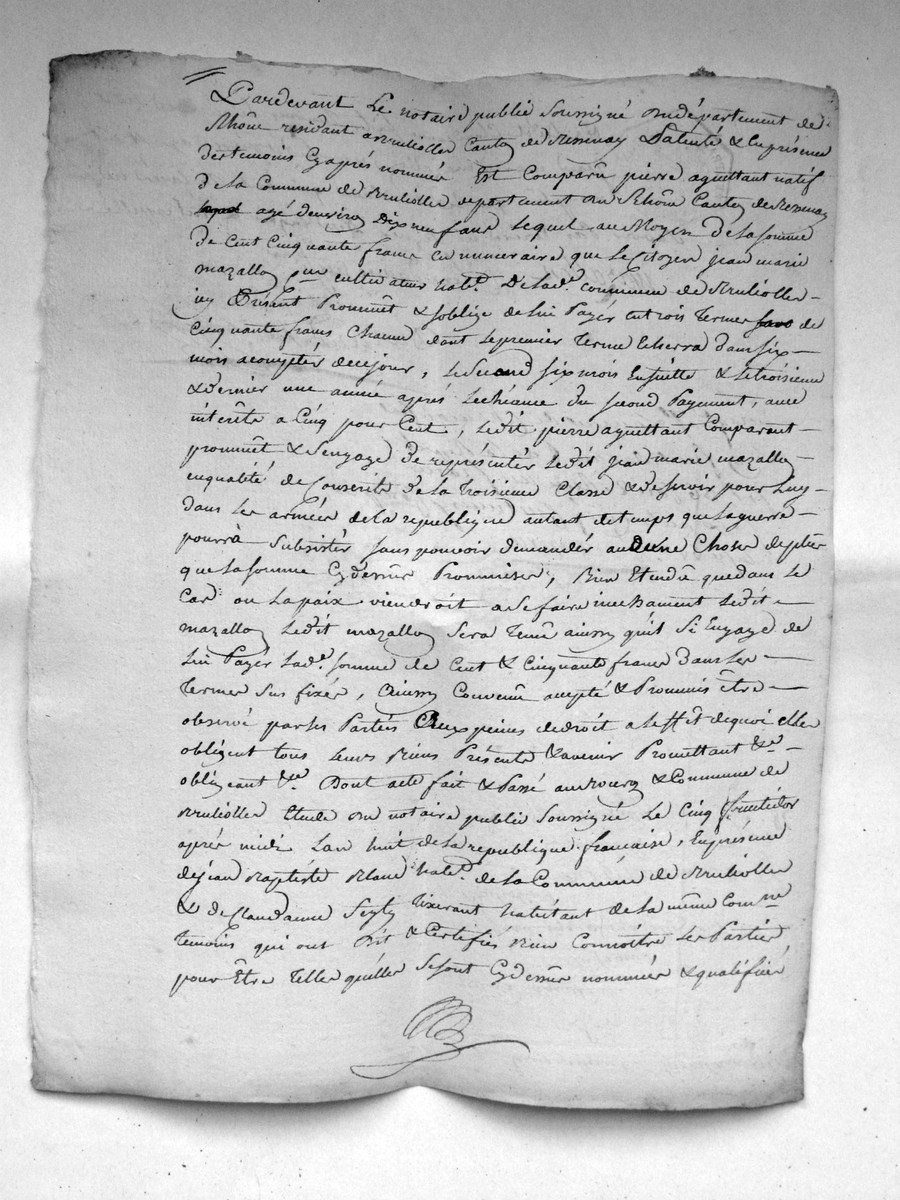 Pardevant Le notaire public Soussigné Du département de
Rhône residant a Brulliolles Canton de Bessenay Patenté & En présence
des temoins Cyaprés nommés Est Comparû pierre aguettant natif
de la Commune de Brulliolles departement du Rhône Canton de Bessenay
agé denviron Dix neuf ans Lequel au Moyen de la somme
de Cent Cinquante francs En numeraire que Le Citoyen jean marie
mazallon cultivateur habt. De lade. commune de Brulliolles
icy Présent Prommet & soblige de lui Payer En trois Termes de
Cinquante francs Chacun dont le premier Terme Echerra dans six
mois a compter de ce jour, le Second six mois Ensuitte & le troisieme
& dernier une année aprés Lechéance du second Payement, avec
intérêts a Cinq pour Cent, Ledit pierre aguettant Comparant
prommet & s'engage De représenter Ledit jean marie mazallon
en qualité de Conscrits de la troisieme Classe & de servir pour Luy
dans Les armées de la republique autant de temps que la guerre
pourrà Subsister sans pouvoir demander aucune Chose de plus
que La somme Cydessus Prommise, Bien Etendû que dans le
Cas ou La paix viendroit a se faire Ledit
mazallon Ledit mazallon sera Tenû ainsy qu'il S'i Engage de
Lui Payer lade. somme de Cent & Cinquante francs dans Les
Termes sus fixés, Ainsy Convenû accepté & Prommis être
observé par les Parties Aux peines de droit a leffet de quoi Elles
obligent tous Leurs Biens Présents & avenir Promettant &a
obligeant &a. Dont acte fait & Passé au Bourg & Commune de
Brulliolles Etude du notaire public Soussigné Le Cinq fructidor
aprés midi Lan huit de la republique française, En présence
de jean Baptiste Blanc habt. de la Commune de Brulliolles
& de Claud Tixerant habitant de la même Comne
Temoins qui ont Dit & Certifiés Bien Connoitre Les Parties
pour Être Telles quélles Se sont Cydessus nommées & qualifiées